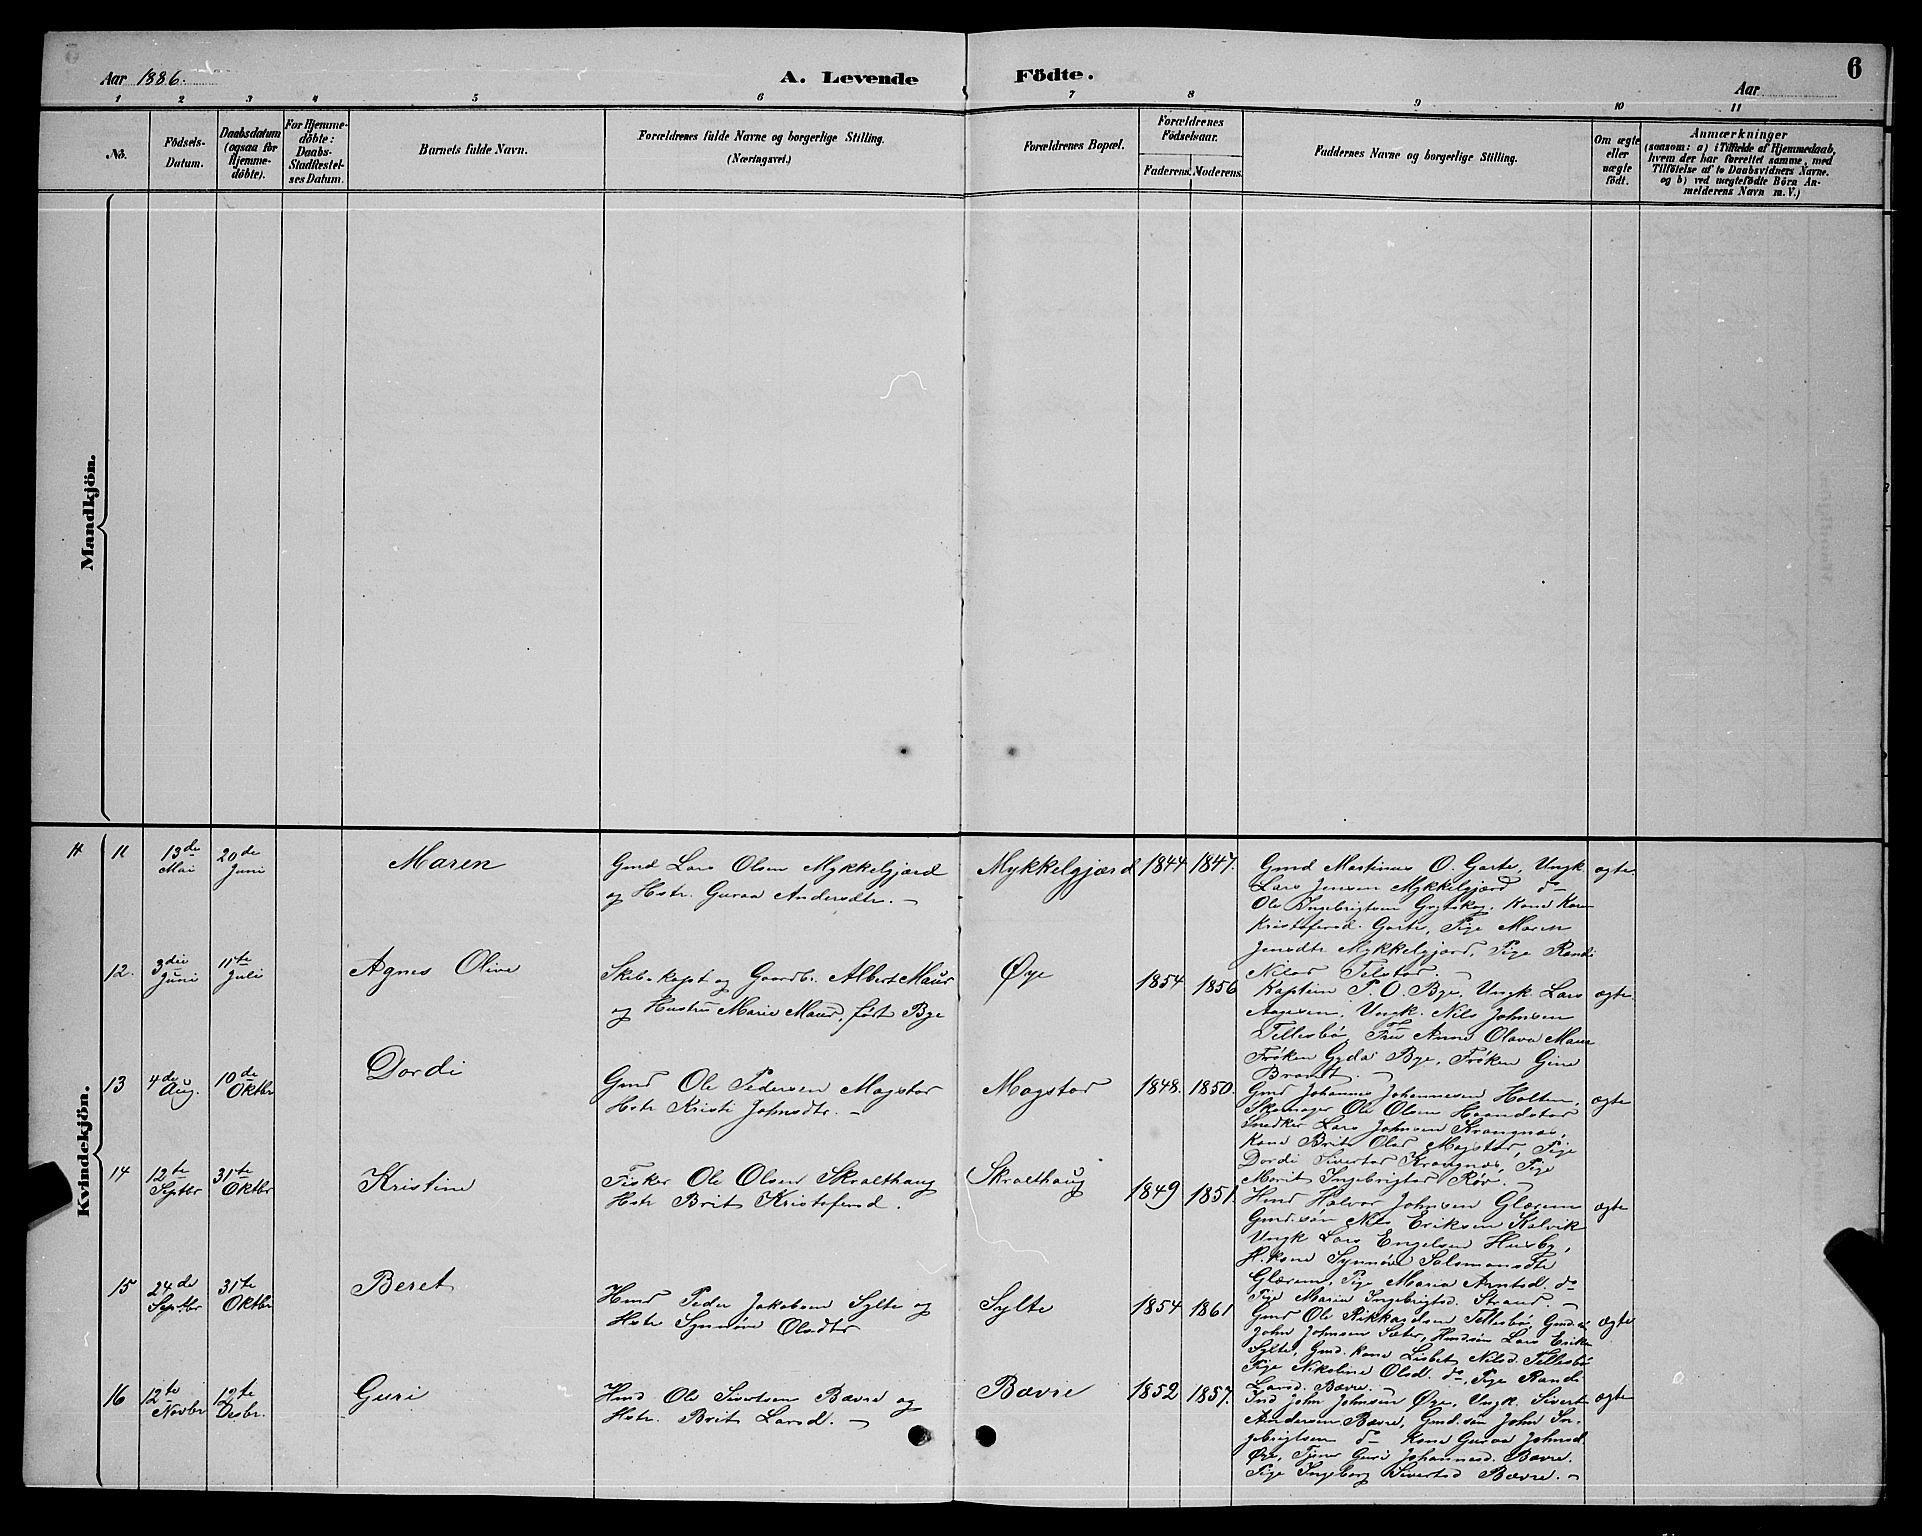 Aar 1886.
A. Levende Födte.
Aar
6
1 2 3 4 5 6 7 8 9 10 11
No.
Födsels-
Datum.
Daabsdatum
(ogsaa for
Hjemme-
döbte).
For Hjemme-
döbte:
Daabs-
Stadfestel-
ses Datum.
Barnets fulde Navn.
Forældrenes fulde Navne og borgerlige Stilling.
(Næringsvei.)
Forældrenes Bopæl.
Forældrenes
Födselsaar.
Faderens. Moderens.
Faddernes Navne og borgerlige Stilling.
Om ægte
eller
uægte
födt.
Anmærkninger
(saasom: a) i Tilfælde af Hjemmedaab,
hvem der har forrettet samme, med
Tilföielse af to Daabsvidners Navne.
og b) ved uægtefödte Börn An-
melderens Navn m. V.)
Mandkjön.
Kvindekjön.
11
13de
Mai
20de
Juni
Maren
Gmd Lars Olsen Mykkelgjerd
og Hstr. Guraa Andersdtr. —
Mykkelgjærd
1844 1847.
Gmd Mastinus O. Garte, Ungk
Lars Jensen Mykkelgjerd do
Ole Ingebrigtsen Grytskog. Kone Karen
Kristofersd. Garte, Pige Maren
Jensdtr Mykkelgjerd, Pige Randi
Nilsd Telstad. —
ægte
12.
3die
Juni
11te
Juli
Agnes Olive
Skibskapt og Gaardb. Albert Maur
og Hustru Marie Maur, født Bye
Øye
1854 1856
Kaptein P. O. Bye, Ungk. Lars
Aagesen, Ungk. Nils Johnsen
Tellesbø, Fru Anne Olava Maur
Frøken Gyda Bye, Frøken Gine
Brandt. —
ægte.
13
4de
Aug.
10de
Oktbr
Dordi
Gmd Ole Pedersen Magstad
Hstr Kristi Johnsdtr. —
Magstad
1848. 1850.
Gmd Johannes Johannesen Holten,
Skomager Ole Olsen Haandstad
Snedker Lars Johnsen Krangnæs,
Kone Brit Olsd Magstad, Pige
Dordi Sivertsd Krangnæs, Pige
Marit Ingebrigtsd Røv. —
ægte
14
12te
Septbr
31te
Oktbr
Kristine
Fisker Ole Olsen Skralthaug
Hstr Brit Kristofersd.
Skralthaug
1849 1851.
Hmd Halvor Johnsen Glærem
Gmd.søn Nils Eriksen Kalvik
Ungk Lars Engelsen Husby,
H.kone Synnøve Salomonsdtr
Glærem, Pige Maria Arntsd. do
Pige Maria Ingebrigtsd. Strand. —
ægte
15
24de
Septbr
31te
Oktbr
Beret
Hmd Peder Jakobsen Sylte og
Hstr Synnøve Olsdtr
Sylte
1854 1861
Gmd Ole Rikkardsen Tellesbø, Gmd.s.
John Johnsen Sæter, Hmdsøn Lars Eriksen
Sylte, Gmd. kone Lisbet Nilsd. Tellesbø
Pige Nikoline Olsd. do, Pige Randi
Larsd. Bævre. —
ægte
16
12te
Novbr
12te
Desbr.
Guri
Hmd Ole Sivertsen Bævre og
Hstr. Brit Larsd. —
Bævre
1852 1857.
Ind John Johnsen Øre, Ungk. Sivert
Andersen Bævre, Gmd.søn John In-
gebrigtsen do Kone Guraa Johnsd
Øre, Tjener Guri Johannesd. Bævre.
Pige Ingeborg Sivertsd Bævre. —
ægte